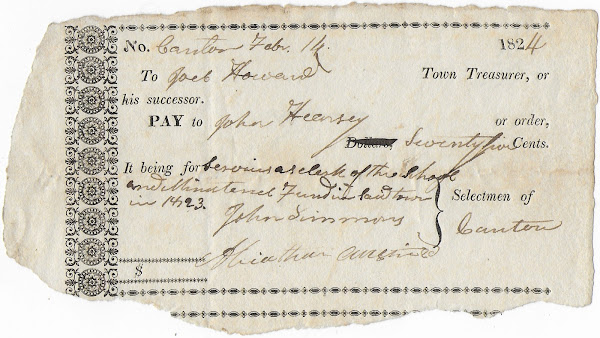 No. Canton Feb. 14. 1824
To Joel Howard Town Treasurer, or
his successor.
PAY to John Hearsey or order,
Dollars, Seventy five Cents.
It being for serving as clerk of the School
and Ministerial Fund in said town
in 1823.
Selectmen of
Canton
John Simmons
$